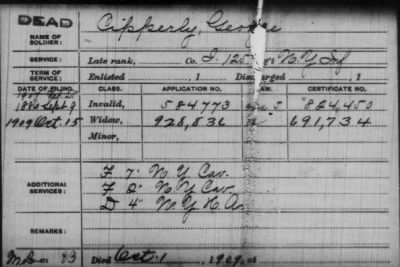 DEAD
NAME OF SOLDIER: Cipperly, George
SERVICE: Late rank, Co. I, 125 N Y Inf
TERM OF SERVICE: Enlisted , 1 Discharged , 1
DATE OF FILING. CLASS. APPLICATION NO. LAW. CERTIFICATE NO.
1886 Sept 9 Invalid, 584773 824,450
1909 Oct. 15 Widow, 928,836 691,734
Minor,
ADDITIONAL SERVICES:
F 7" N Y Cav.
F 2" N Y Cav.
D 4" N Y H A
REMARKS:
Died Oct. 1, 1909, at